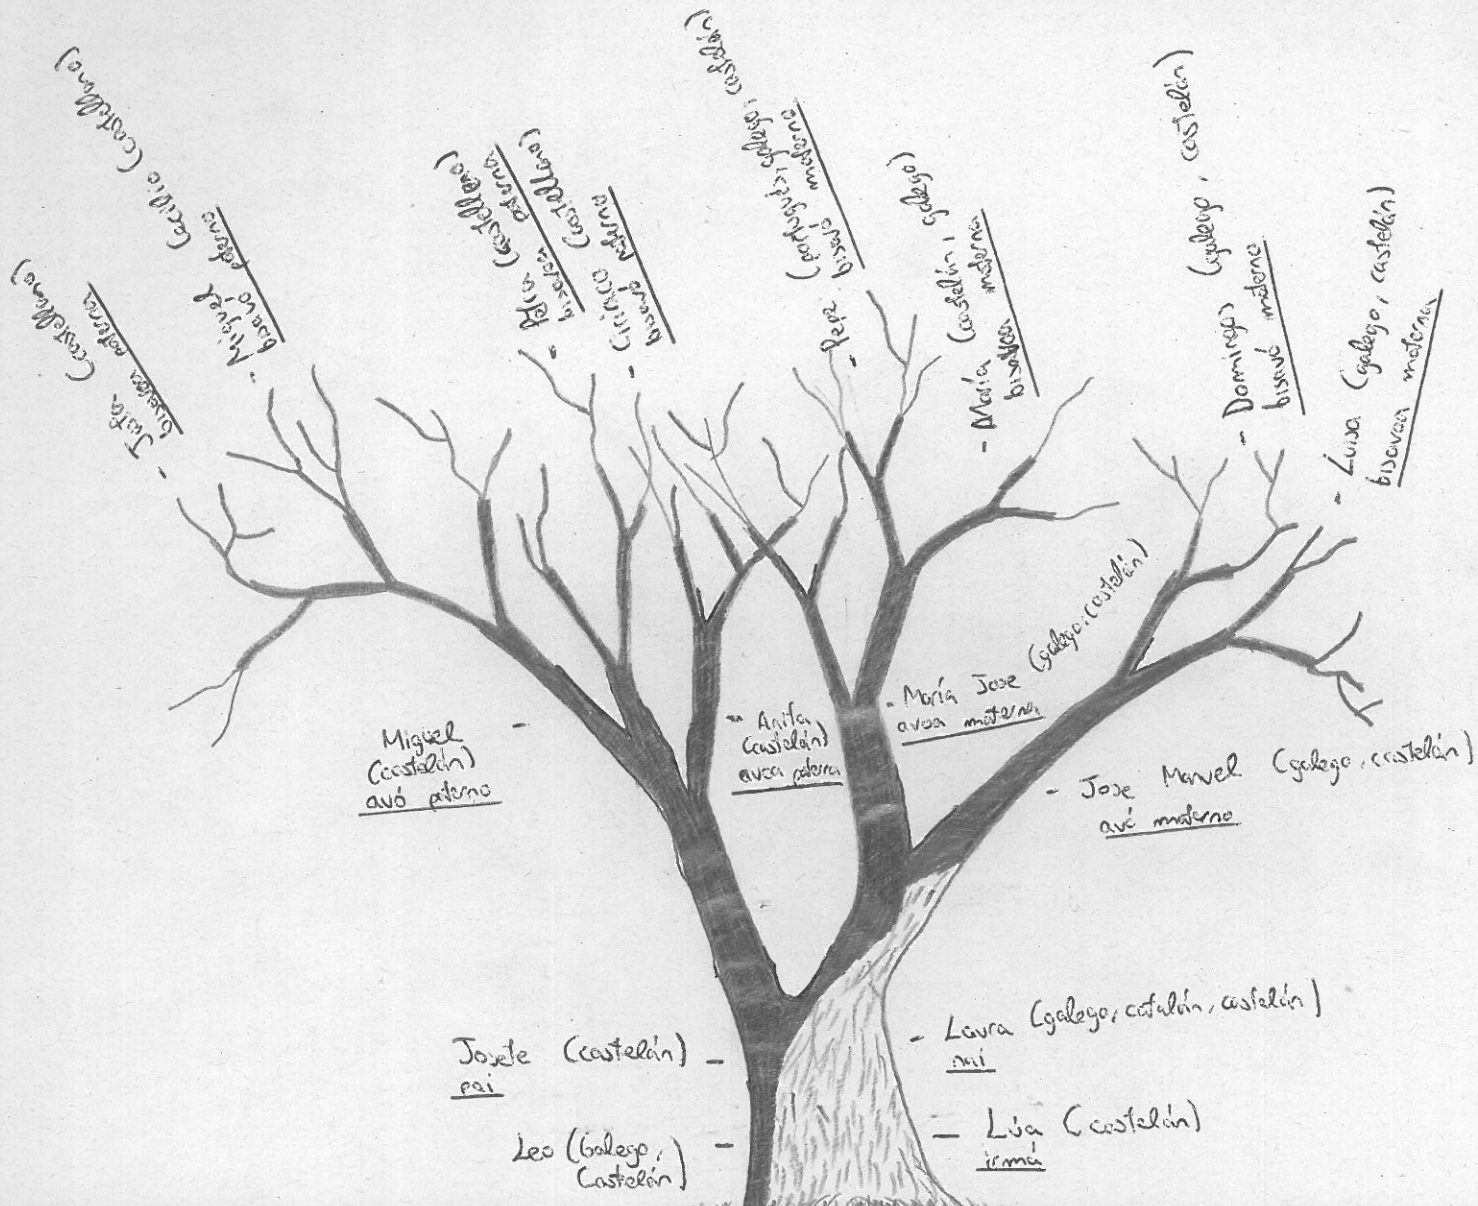 - Justa (Castellano)
bisavoa paterna
- Miguel Cecilio (Castellano)
bisavó paterno
- Pepita (Castellano)
bisavoa paterna
- Ciriaco (Castellano)
bisavó paterno
- Pepe (portugués, galego, castelán)
bisavó materno
- María (castelán, galego)
bisavoa materna
- Domingos (galego, castelán)
bisavó materno
- Luisa (galego, castelán)
bisavoa materna
Miguel -
(castelán)
avó paterno
- Anita
(castelán)
avoa paterna
- María Jose (galego, castelán)
avoa materna
- Jose Manuel (galego, castelán)
avó materno
Josete (castelán) -
pai
- Laura (galego, catalán, castelán)
nai
Leo (Galego, -
Castelán)
- Lúa (castelán)
irmá